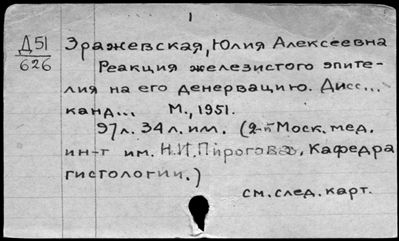 1
Д51
626
Зражевская, Юлия Алексеевна
Реакция железистого эпите-
лия на его денервацию. Дисс...
канд... М., 1951.
97л. 34 л. им. (2-й Моск. мед.
ин-т им. Н.И. Пирогова. Кафедра
гистологии.)
см. след. карт.